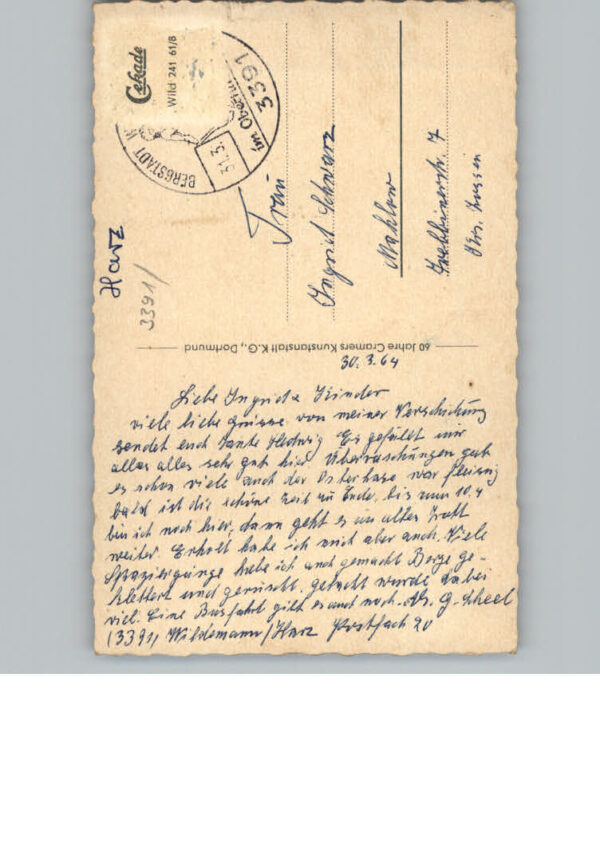 Cekade
Wild 241 61/8
BERGSTADT
31.3.
im Oberharz
3391
Harz
3391/
Frau
Ingrid Schwarz
Mahlow
Trebbinerstr. 7
Krs. Zossen
60 Jahre Cramers Kunstanstalt K.G., Dortmund
30.3.64
Liebe Ingrid & Kinder
viele liebe grüsse von meiner Verschickung
sendet euch Tante Hedwig Es gefällt mir
alles alles sehr gut hier Überraschungen gab
es schon viele auch der Osterhase war fleissig
bald ist die schöne Zeit zu Ende, bis zum 10.4
bin ich noch hier, dann geht es im alten Trott
weiter. Erholt habe ich mich aber auch. Viele
Spaziergänge habe ich auch gemacht Berge ge-
klettert und gerutscht. gelacht wurde dabei
viel. Eine Busfahrt gibt es auch noch. G. Scheel
(3391) Wildemann/Harz Postfach 20